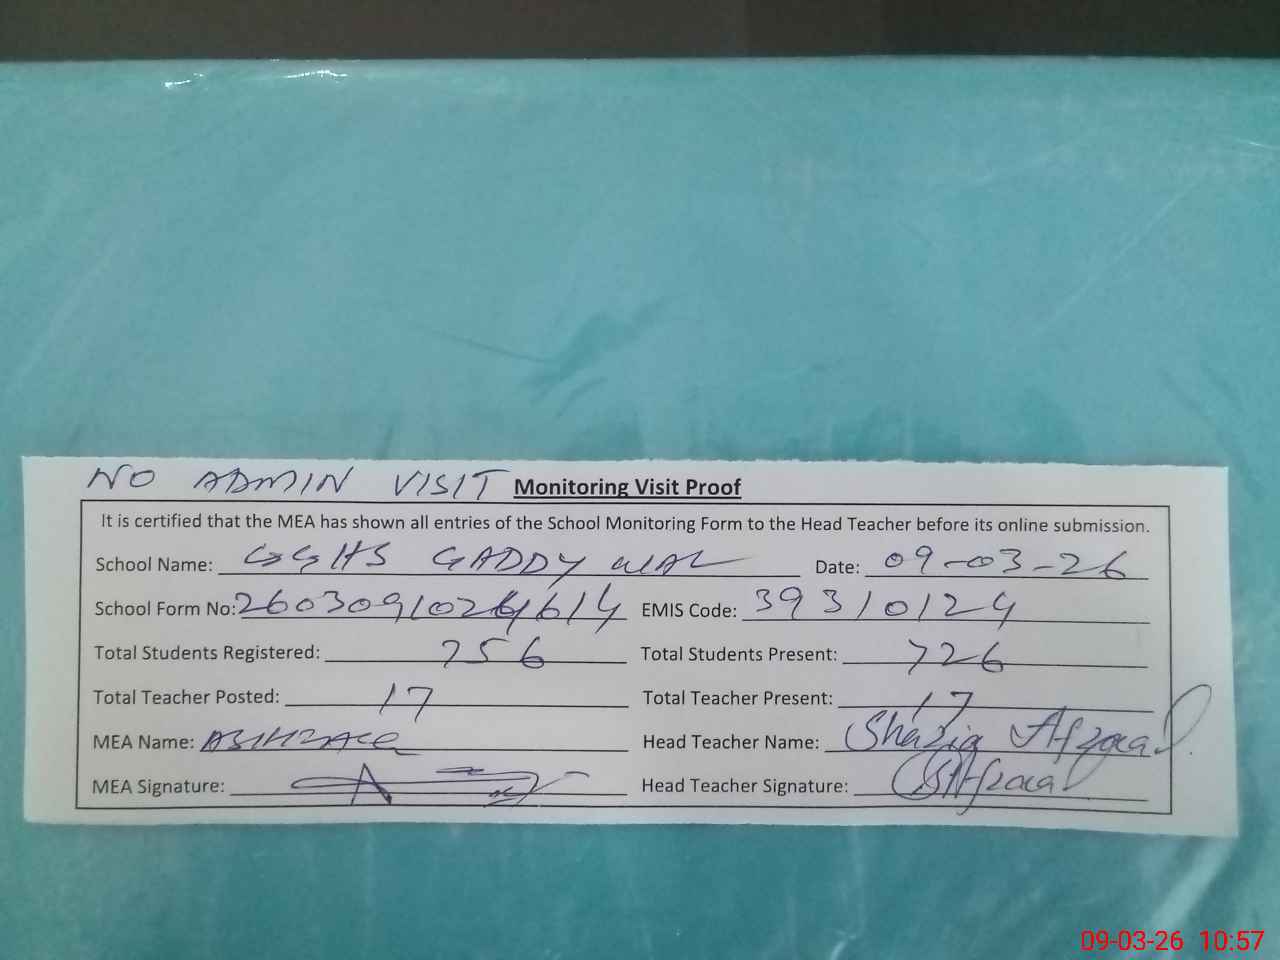 NO ADMIN VISIT Monitoring Visit Proof
It is certified that the MEA has shown all entries of the School Monitoring Form to the Head Teacher before its online submission.
School Name: GGHS GADDY WAL Date: 09-03-26
School Form No: EMIS Code: 39310124
Total Students Registered: 756 Total Students Present: 726
Total Teacher Posted: 17 Total Teacher Present: 17
MEA Name: Head Teacher Name: Shazia Afzaal
MEA Signature: Head Teacher Signature: SAfzaal
09-03-26 10:57